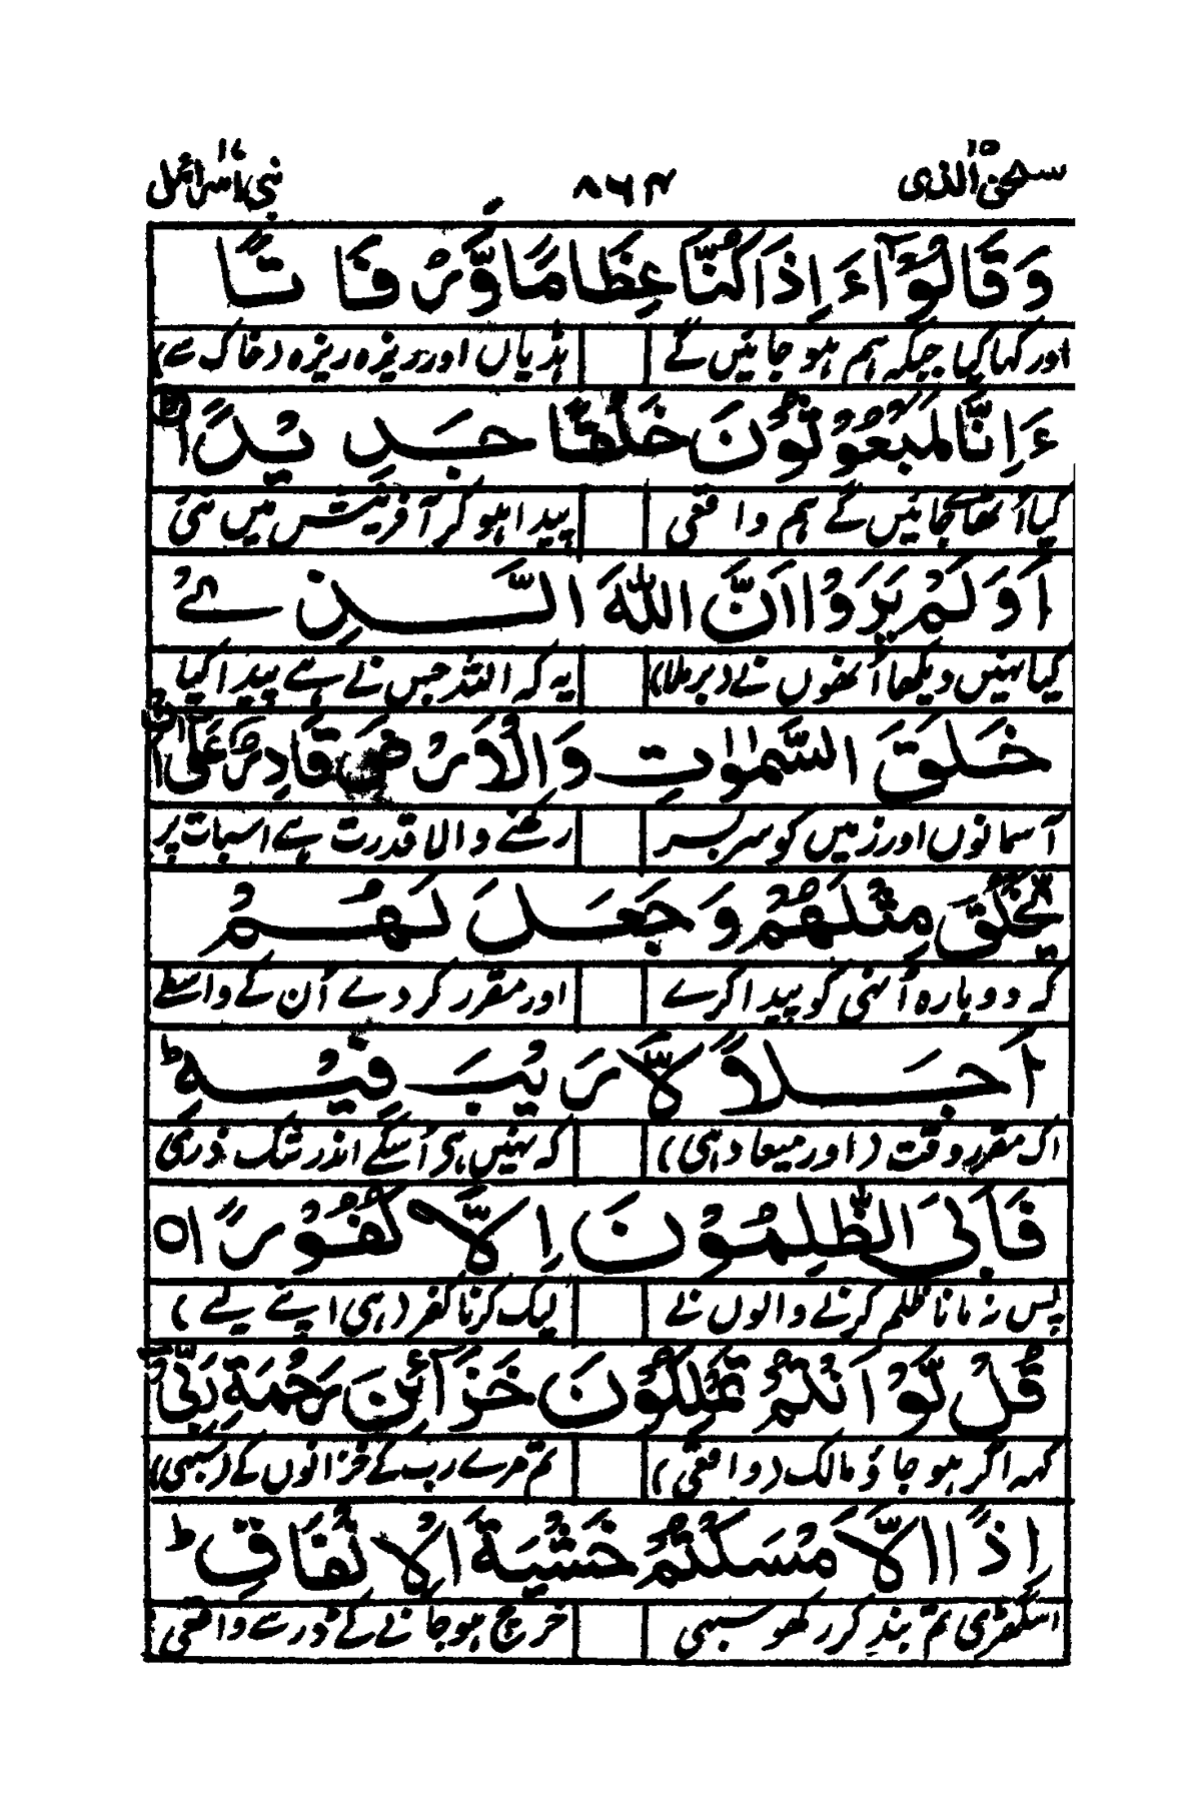 سبحٰن الذی ۱۵ ۸۶۴ بنی اسرائیل ۱۷
وَقَالُوْٓا ءَاِذَا كُنَّا عِظَامًا وَّرُفَاتًا
اور کہا کیا جبکہ ہم ہو جائیں گے ہڈیاں اور ریزہ ریزہ (خاک سے)
ءَاِنَّا لَمَبْعُوْثُوْنَ خَلْقًا جَدِيْدًا
کیا اُٹھائے جائیں گے ہم واقعی پیدا ہو کر آفرینش میں نئی
اَوَلَمْ يَرَوْا اَنَّ اللّٰهَ الَّذِىْ
کیا نہیں دیکھا اُنھوں نے (برملا) یہ کہ اللہ جس نے ہے پیدا کیا
خَلَقَ السَّمٰوٰتِ وَالْاَرْضَ قَادِرٌ عَلٰٓى
آسمانوں اور زمیں کو سربسر رکھنے والا قدرت ہے اسبات پر
يَّخْلُقَ مِثْلَهُمْ وَجَعَلَ لَهُمْ
کہ دوبارہ اُنہی کو پیدا کرے اور مقرر کر دے اُن کے واسطے
اَجَلًا لَّا رَيْبَ فِيْهِ ؕ
اک مقرر وقت (اور میعاد ہی) کہ نہیں ہی اُسکے اندر شک ذری
فَاَبَى الظّٰلِمُوْنَ اِلَّا كُفُوْرًا ○
پس نہ مانا ظلم کرنے والوں نے لیک کرنا کفر (ہی اپنے لیے)
قُلْ لَّوْ اَنْتُمْ تَمْلِكُوْنَ خَزَآئِنَ رَحْمَةِ رَبِّىْٓ
کہہ اگر ہو جاؤ مالک (واقعی) تم مرے رب کے خزانوں کے (سبھی)
اِذًا لَّاَمْسَكْتُمْ خَشْيَةَ الْاِنْفَاقِ ؕ
اسگھڑی تم بند کر رکھو سبھی خرچ ہو جانے کے ڈر سے واقعی